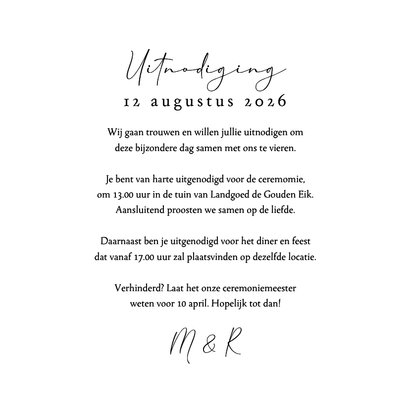 Uitnodiging
12 augustus 2026
Wij gaan trouwen en willen jullie uitnodigen om
deze bijzondere dag samen met ons te vieren.
Je bent van harte uitgenodigd voor de ceremomie,
om 13.00 uur in de tuin van Landgoed de Gouden Eik.
Aansluitend proosten we samen op de liefde.
Daarnaast ben je uitgenodigd voor het diner en feest
dat vanaf 17.00 uur zal plaatsvinden op dezelfde locatie.
Verhinderd? Laat het onze ceremoniemeester
weten voor 10 april. Hopelijk tot dan!
M & R